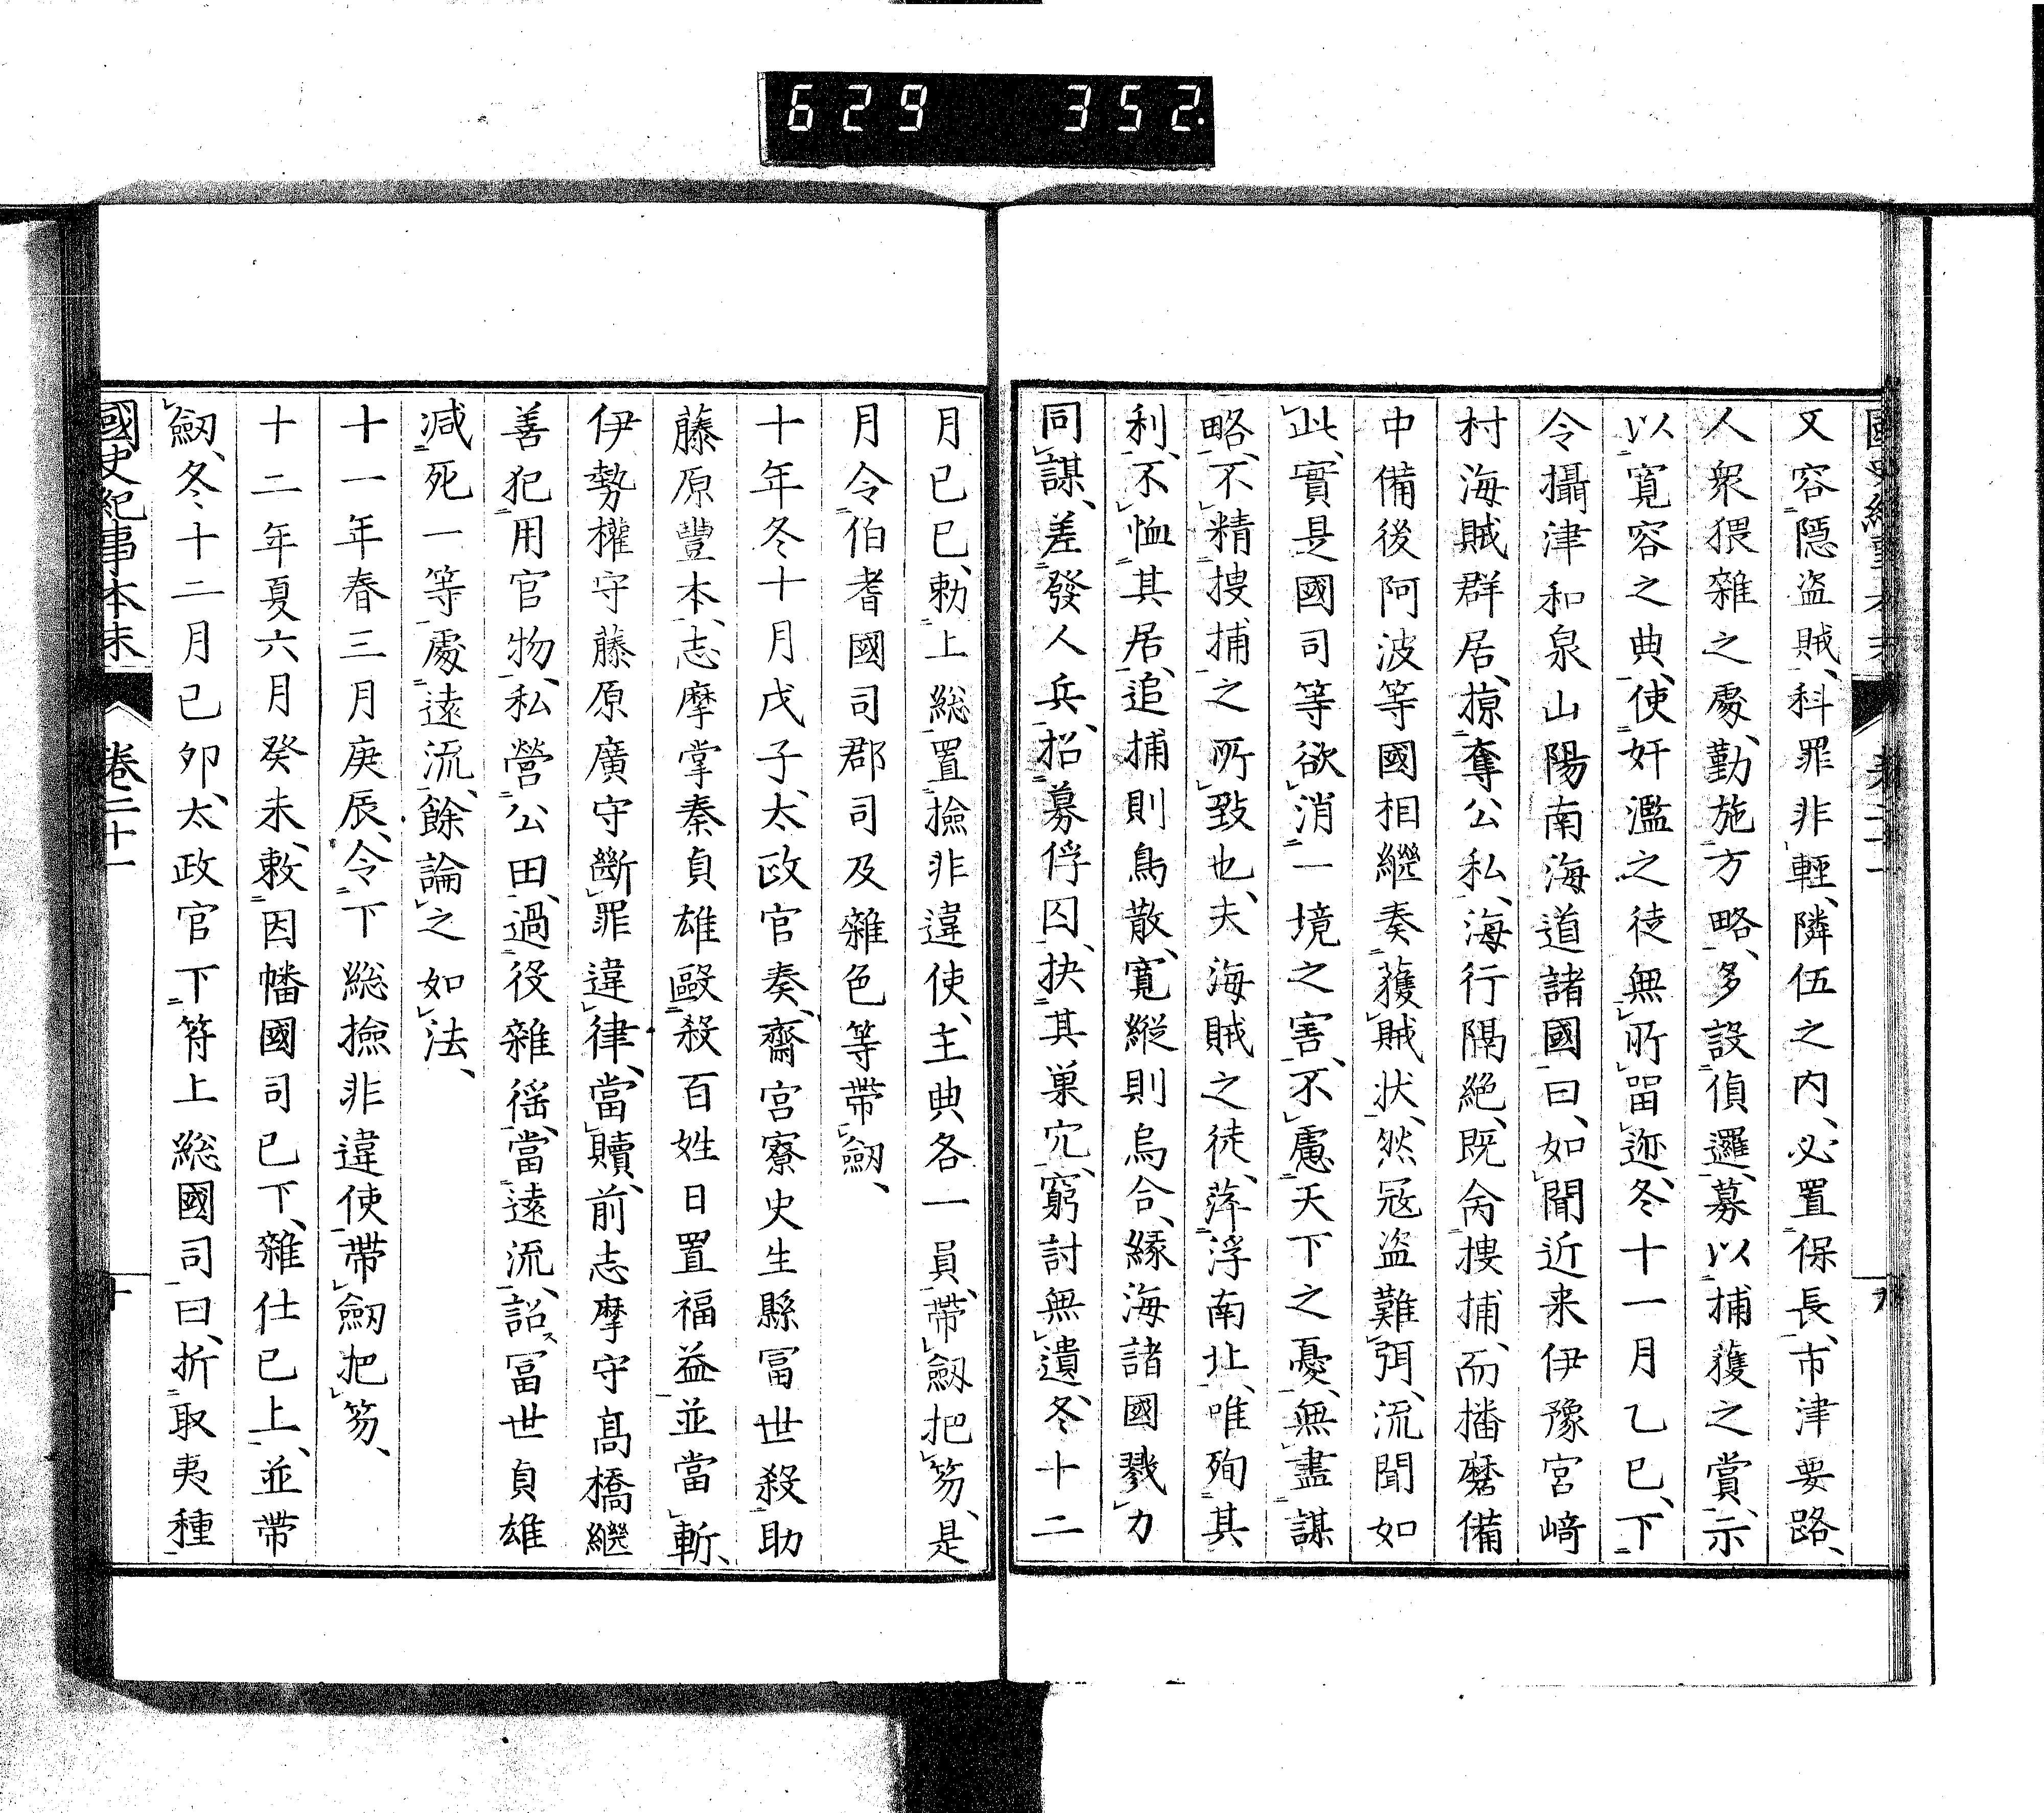 629 352
又容隱盗賊、科罪非輕、隣伍之内、必置保長、市津要路、
人衆猥雜之處、勤施方略、多設偵邏、募以捕獲之賞、示
以寛容之典、使奸濫之徒無所畱迹、冬十一月乙巳、下
令攝津和泉山陽南海道諸國曰、如聞近来伊豫宮﨑
村海賊群居、掠奪公私、海行隔絶、既令捜捕、而播磨備
中備後阿波等國相繼奏獲賊状、然冦盗難弭、流聞如
此、實是國司等欲消一境之害、不慮天下之憂、無盡謀
略、不精捜捕之所致也、夫海賊之徒、萍浮南北、唯殉其
利、不恤其居、追捕則鳥散、寛縦則烏合、縁海諸國戮力
同謀、差發人兵、招募俘囚、抉其巣穴、窮討無遺、冬十二
月己巳、勅上総置撿非違使、主典各一員、帶劔把笏、是
月令伯耆國司郡司及雜色等帶劔、
十年冬十月戊子、太政官奏、齋宮寮史生縣冨世殺助
藤原豐本、志摩掌秦貞雄毆殺百姓日置福益並當斬、
伊勢權守藤原廣守斷罪違律、當贖、前志摩守髙橋繼
善犯用官物、私營公田、過役雜徭、當遠流、詔冨世貞雄
減死一等、處遠流、餘論之如法、
十一年春三月庚辰、令下総撿非違使帶劔把笏、
十二年夏六月癸未、敕因幡國司已下、雜仕已上、並帶
劔、冬十二月己卯、太政官下符上総國司曰、折取夷種
國史紀事本末 卷二十一 十